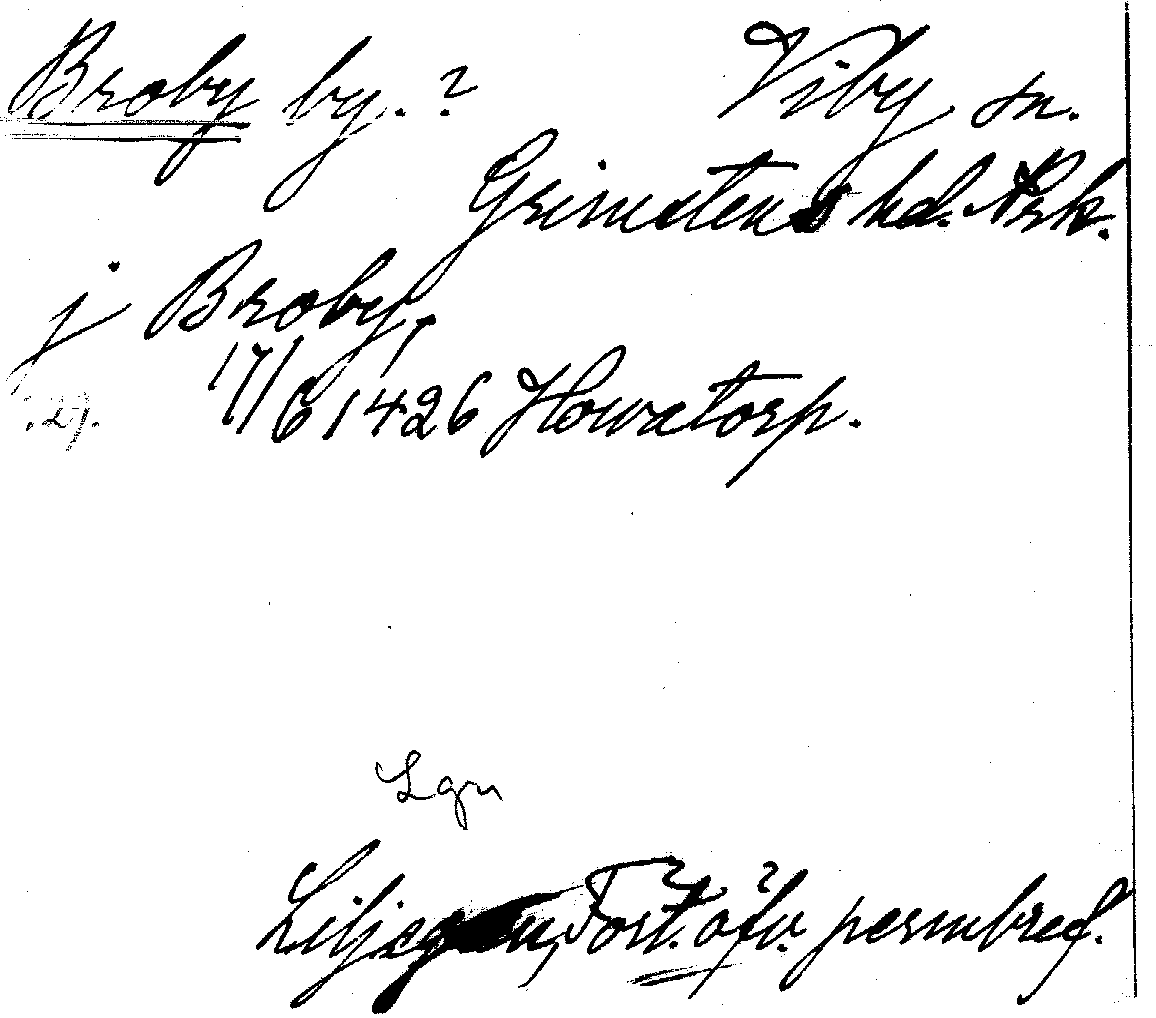 Broby by.? Viby sn.
Grimstens hd. Nrk.
j Broby,
17/6 1426 Howatorp.
.29.
Lgn
Liljegren, Fört. öfv. permbref.